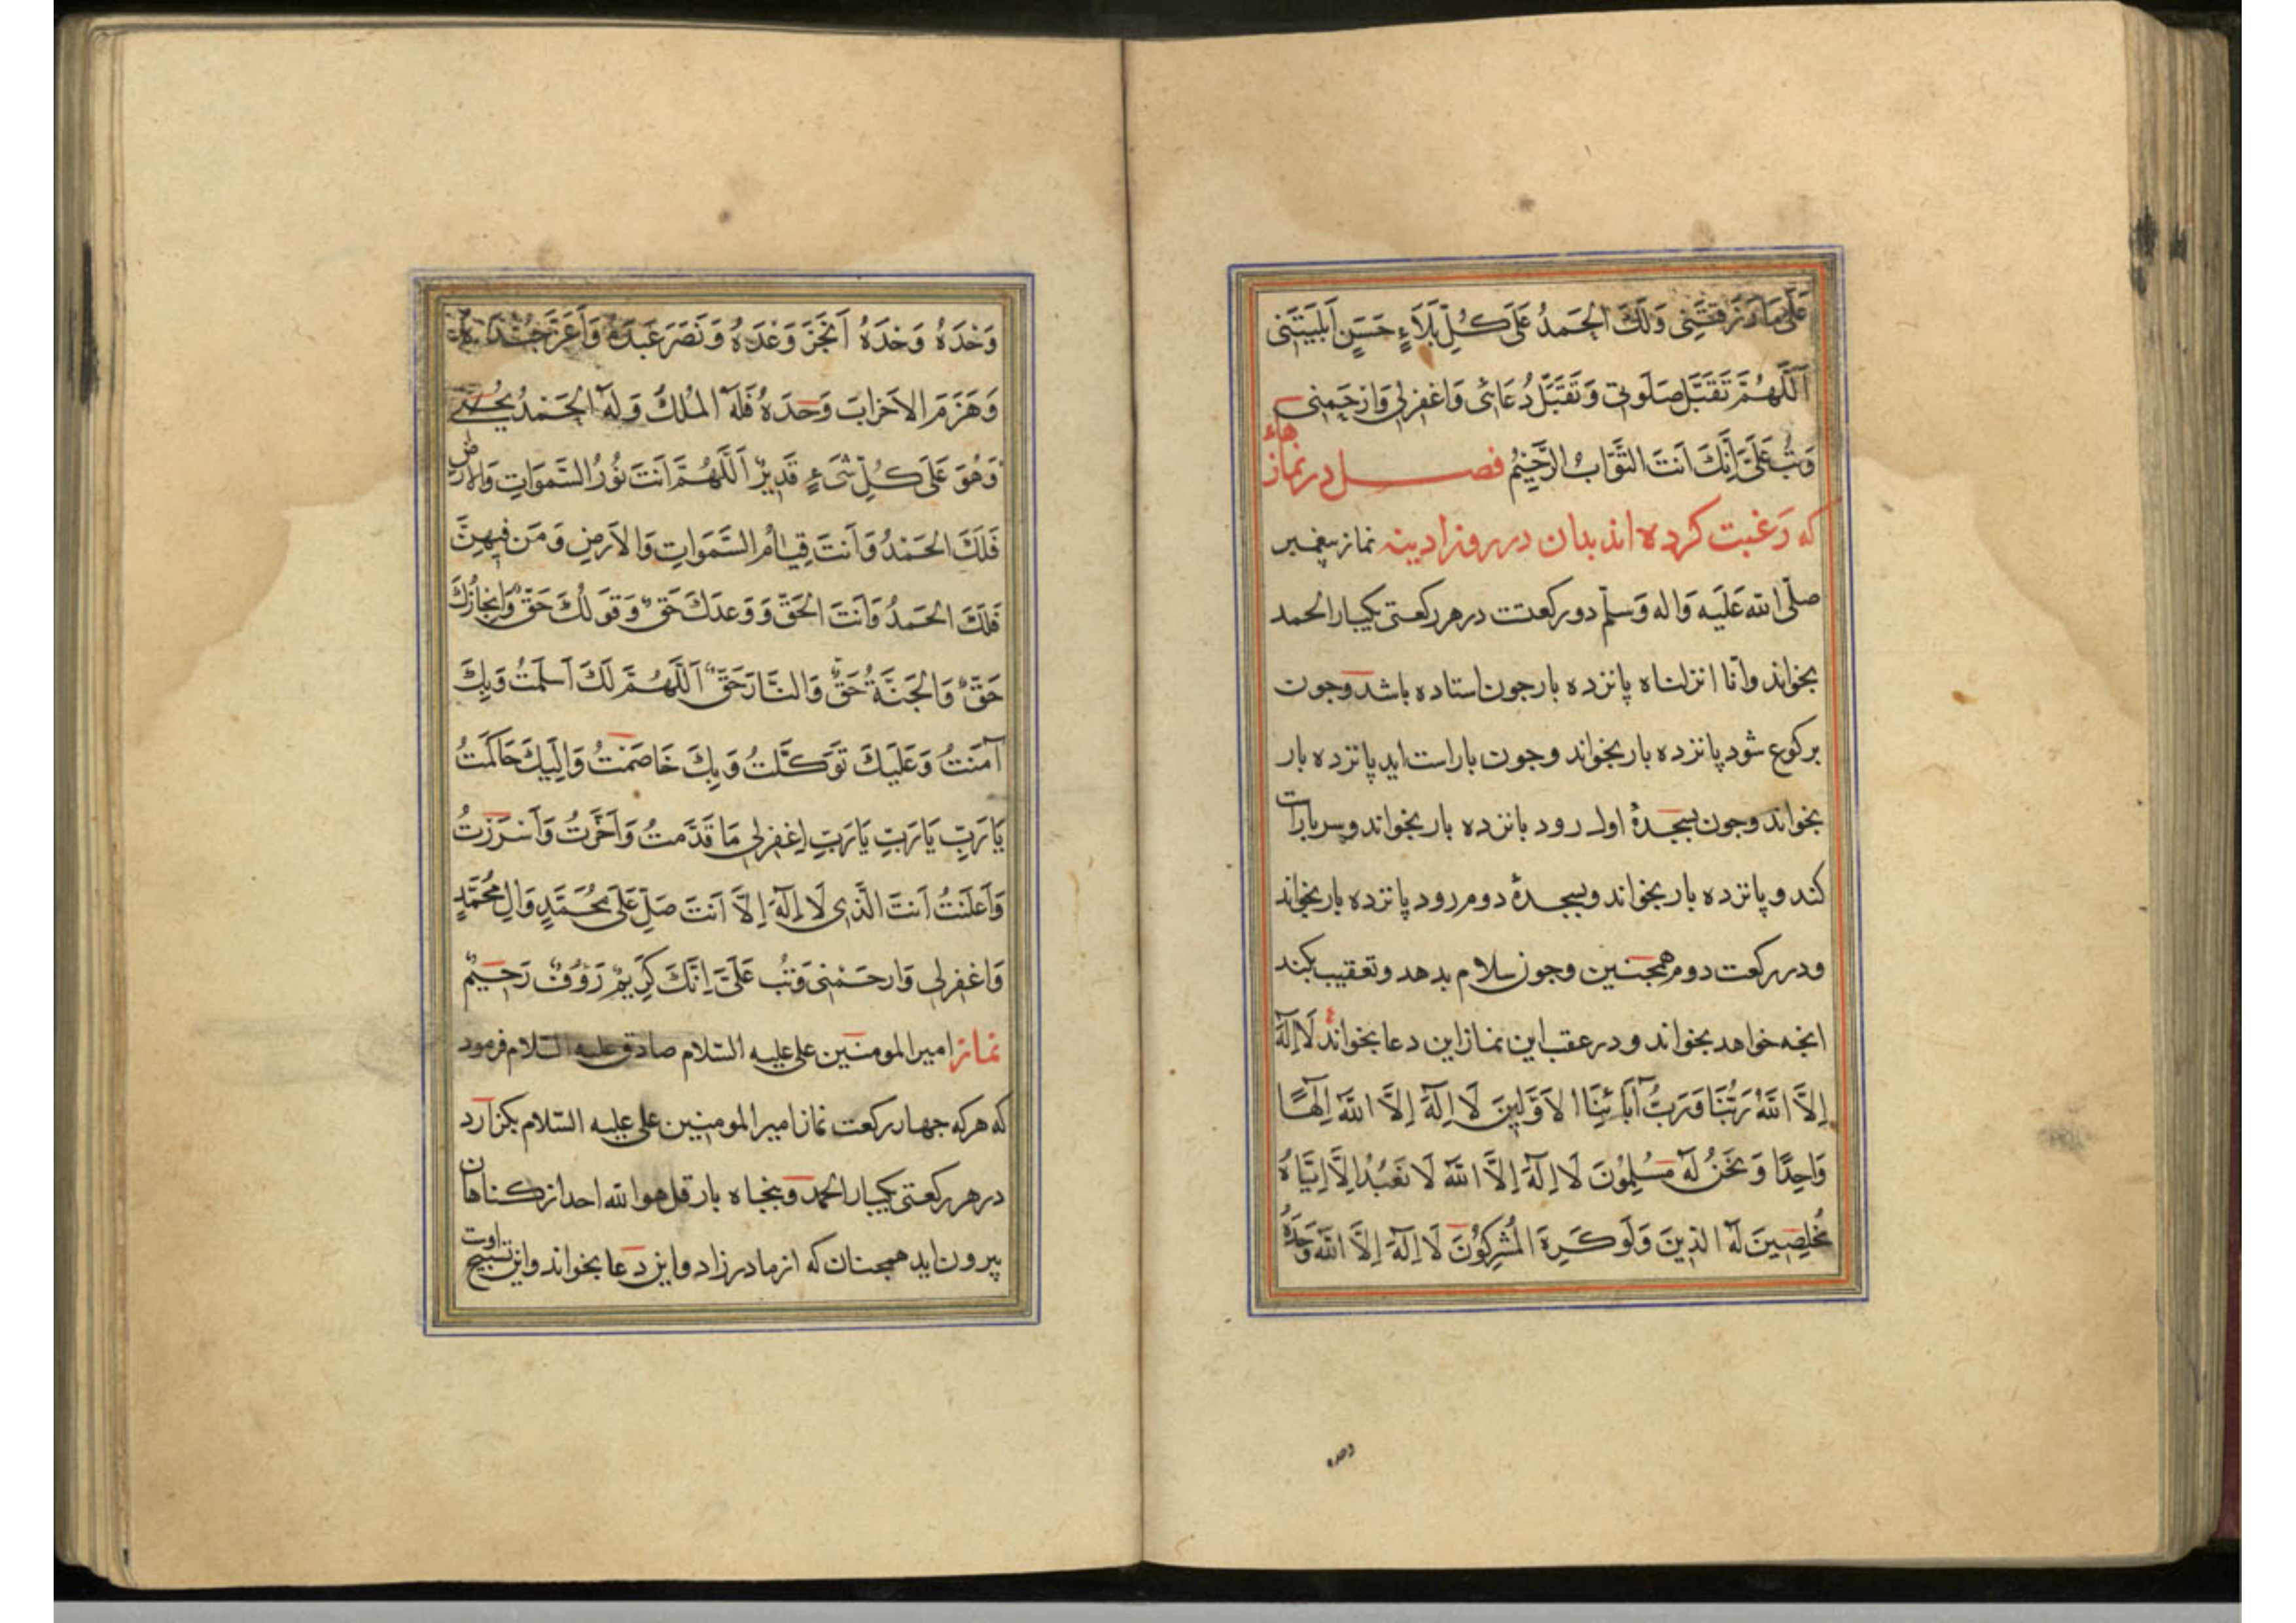 عَلَى مَا رَزَقتَنِی وَلَكَ الحَمدُ عَلَی كُلِّ بَلَاءٍ حَسَنٍ اَبلَیتَنِی
اَللّٰهُمَّ تَقَبَّل صَلَوتی وَتَقَبَّل دُعَائی وَاغفِرلِی وَارحَمنِی
وَتُب عَلَیَّ اِنَّكَ اَنتَ التَّوَّابُ الرَّحِیمُ فصل در نمازهاء
که رَغبت کرده اند بدان در روز ادینه نماز پیغمبر
صلّی الله عَلَیه وَاله وَسلّم دو رکعتست در هر رکعتی یکبار الحمد
بخواند وانّا انزلناه پانزده بار جون استاده باشد وجون
برکوع شود پانزده بار بخواند وجون باراست اید پانزده بار
بخواند وجون بسجدۀ اول رود بانزده بار بخواند وسر باراست
کند و پانزده بار بخواند وبسجدۀ دوم رود پانزده بار بخواند
ودر رکعت دوم همجنین وجون سلام بدهد وتعقیب بکند
انجه خواهد بخواند ودر عقب این نماز این دعا بخواند لَا اِلٰهَ
اِلَّا اللهُ رَبُّنَا وَرَبُّ آبَائِنَا الاَوَّلِینَ لَا اِلٰهَ اِلَّا اللهُ اِلٰهًا
وَاحِدًا وَنَحنُ لَهُ مُسلِمُونَ لَا اِلٰهَ اِلَّا اللهُ لَا نَعبُدُ اِلَّا اِیَّاهُ
مُخلِصِینَ لَهُ الدِینَ وَلَو كَرِهَ المُشرِكُونَ لَا اِلٰهَ اِلَّا اللهُ وَحدَهُ
وحده
وَحْدَهُ وَحْدَهُ اَنجَزَ وَعْدَهُ وَنَصَرَ عَبدَهُ وَاَعَزَّ جُندَهُ
وَهَزَمَ الاَحزابَ وَحدَهُ فَلَهُ المُلكُ وَلَهُ الحَمْدُ یُحیی
وَهُوَ عَلَی كُلِّ شَیءٍ قَدِیرٌ اَللّٰهُمَّ اَنتَ نُورُ السَّموَاتِ وَالارض
فَلَكَ الحَمْدُ وَاَنتَ قِیَامُ السَّمَوَاتِ وَالاَرضِ وَمَن فِیهِنَّ
فَلَكَ الحَمدُ وَاَنتَ الحَقُّ وَوَعدُكَ حَقٌّ وَقَولُكَ حَقٌّ وَاِنجازُكَ
حَقٌّ وَالجَنَّةُ حَقٌّ وَالنَّارُ حَقٌّ اَللّٰهُمَّ لَكَ اَسلَمتُ وَبِكَ
آمَنتُ وَعَلَیكَ تَوَكَّلتُ وَبِكَ خَاصَمتُ وَاِلَیكَ حَاكَمتُ
یَارَبِّ یَارَبِّ یَارَبِّ اِغفِرلِی مَا قَدَّمتُ وَاَخَّرتُ وَاَسرَرتُ
وَاَعلَنتُ اَنتَ الَّذِی لَا اِلٰهَ اِلَّا اَنتَ صَلِّ عَلَی مُحَمَّدٍ وَالِ مُحَمَّدٍ
وَاغفِرلِی وَارحَمْنِی وَتُب عَلَیَّ اِنَّكَ كَرِیمٌ رَؤُوفٌ رَحِیمٌ
نماز امیر المومنین علی علیه السّلام صادق علیه السّلام فرمود
که هرکه جهار رکعت نماز امیر المومنین علی علیه السّلام بکزارد
در هر رکعتی یکبار الحمد وبنجاه بار قل هو الله احد از کناهان
بیرون اید همجنان که از مادر زاد واین دعا بخواند واین تسبیح اوست